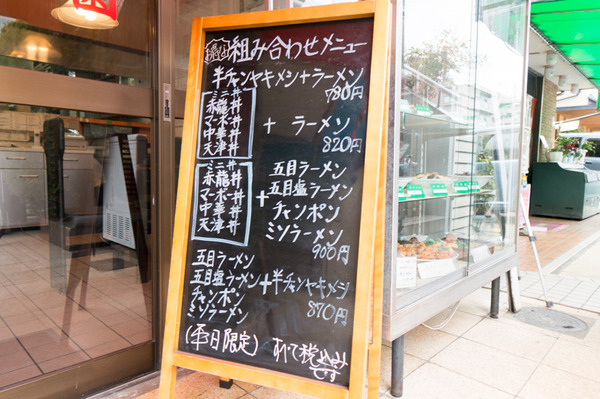 組み合わせメニュー
半チャンヤキメシ+ラーメン
780円
ミニ丼
赤龍丼
マーボー丼
中華丼
天津丼
+ ラーメン
820円
ミニ丼
赤龍丼
マーボー丼
中華丼
天津丼
+
五目ラーメン
五目塩ラーメン
チャンポン
ミソラーメン
900円
五目ラーメン
五目塩ラーメン
チャンポン
ミソラーメン
+半チャンヤキメシ
870円
(平日限定)
すべて税込み
です